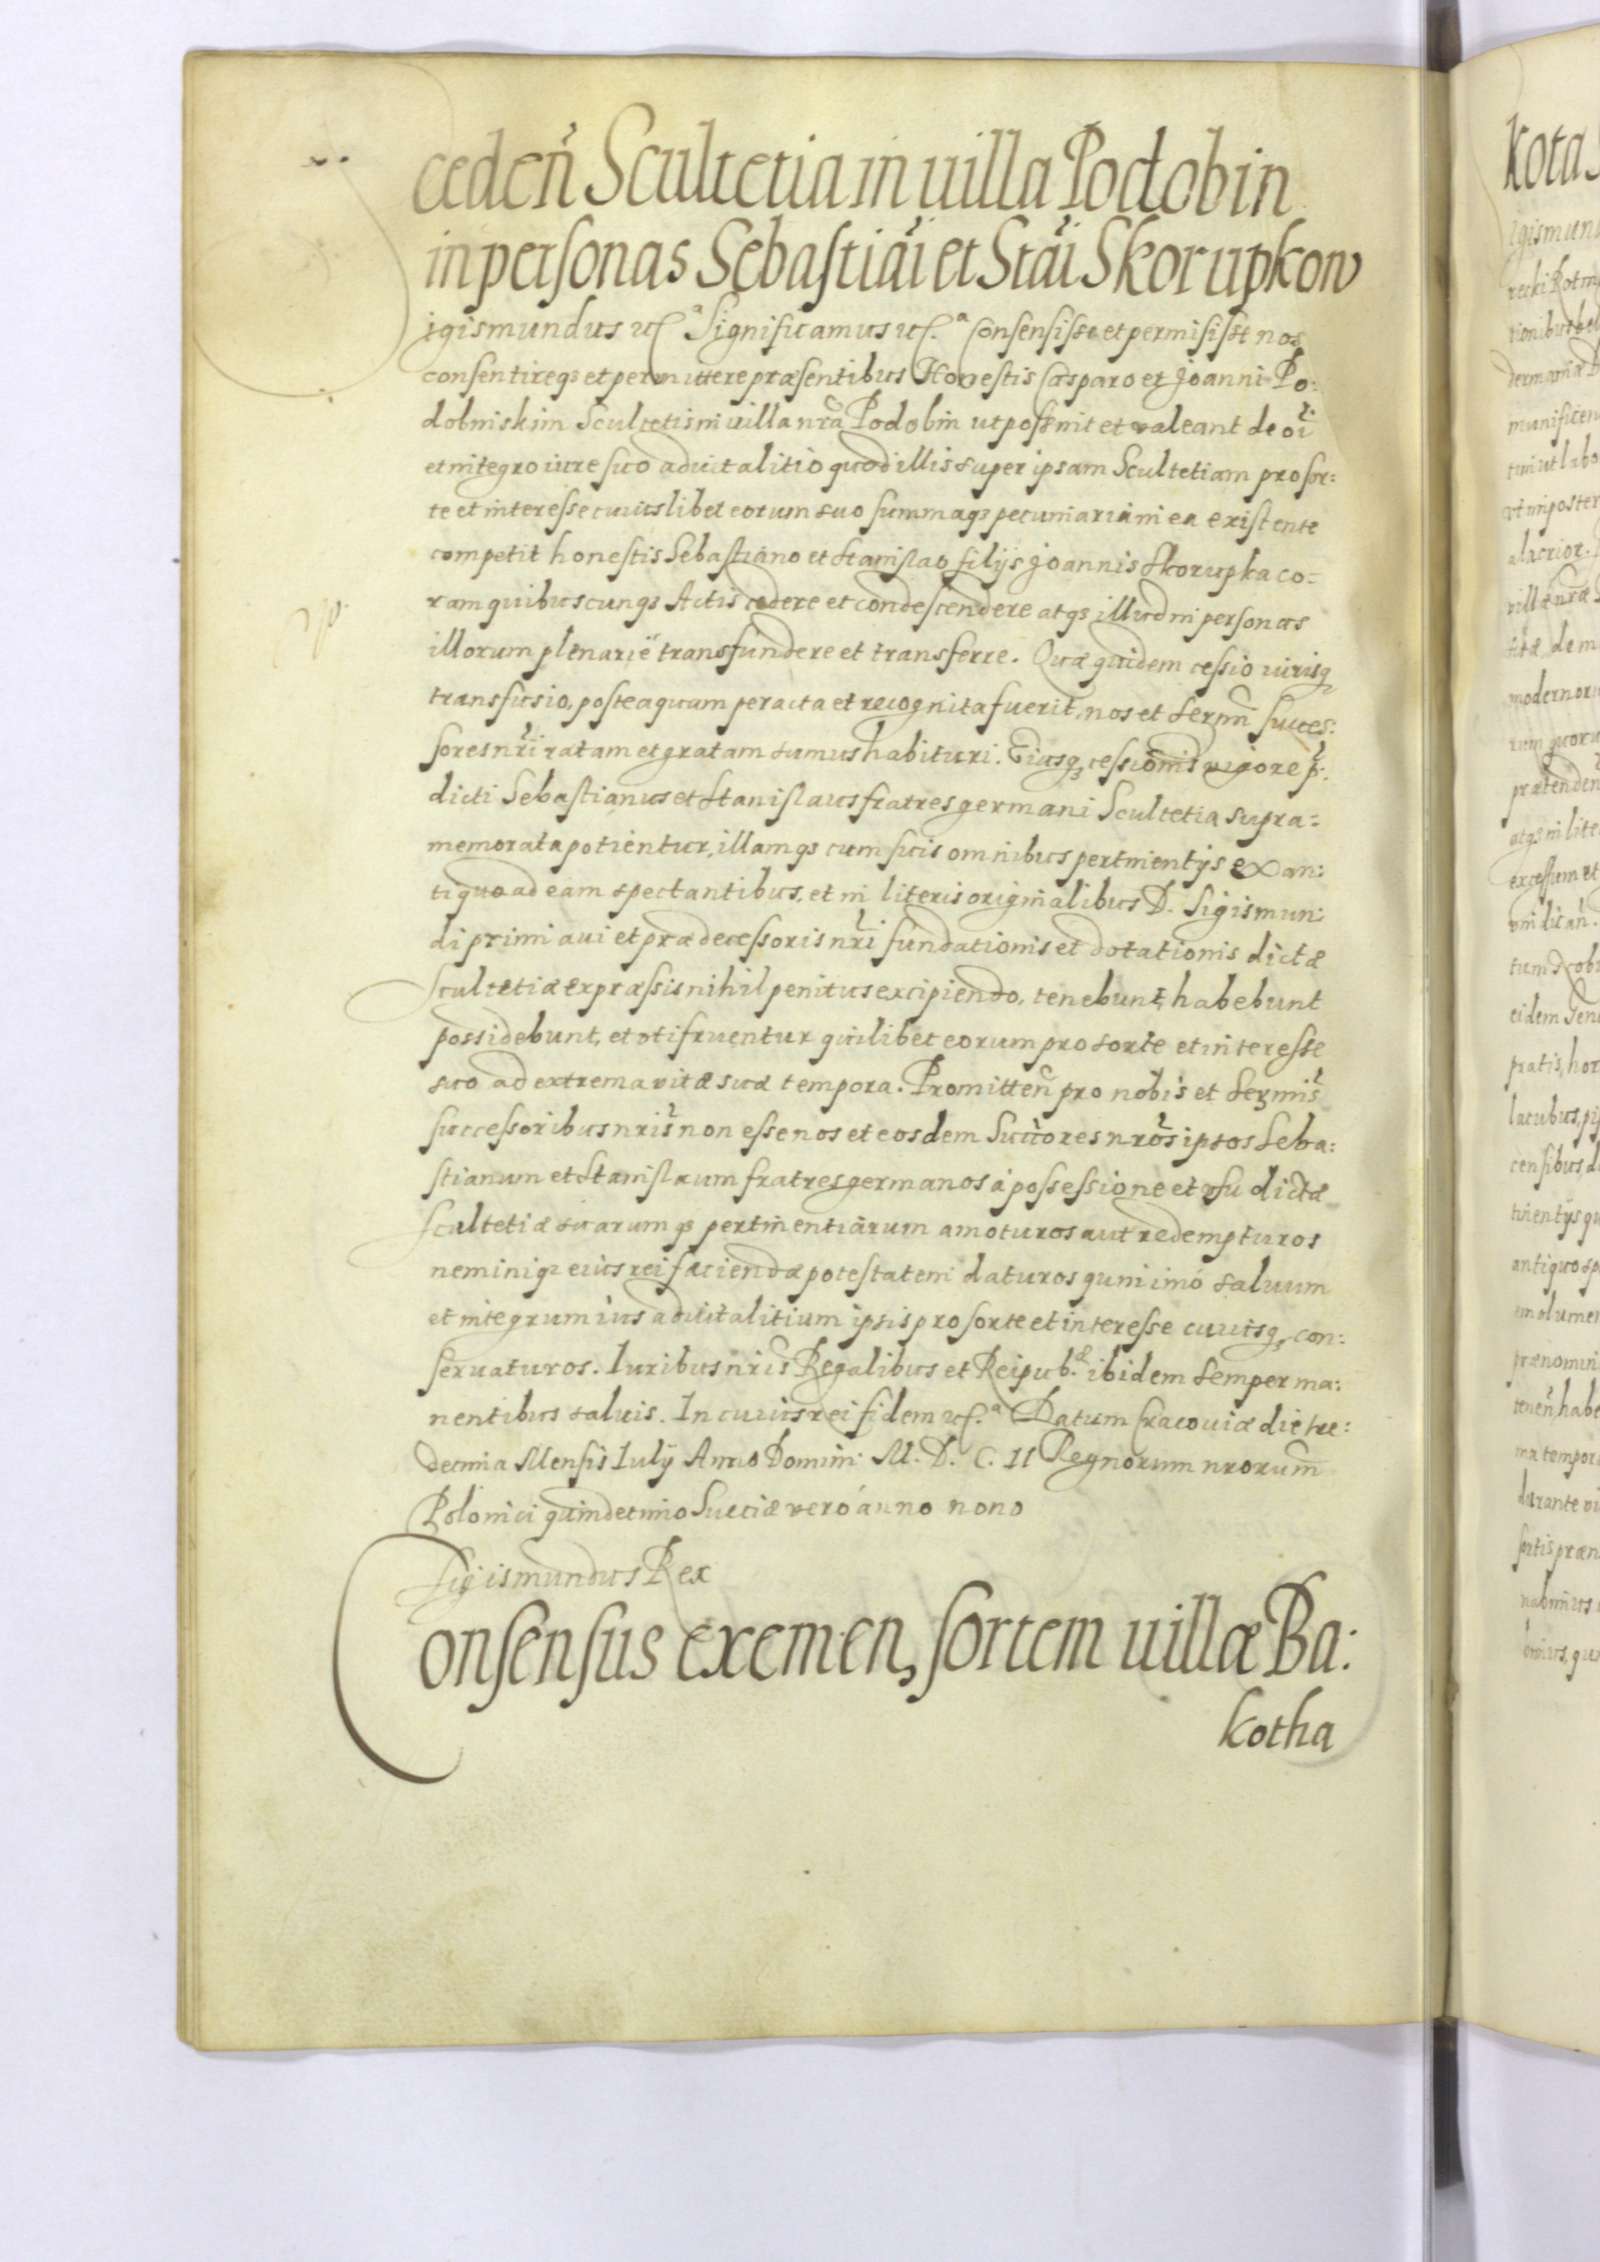 ceden̄ Scultetia in uilla Podobin
in personas Sebastiāi et Stāi Skorupkow
igismundus uc.ᵃ Significamus uc.ᵃ Consensisse et permisisse nos
consentireqȝ et permittere præsentibus Honestis Casparo et Joanni Po:
dobinskim Scultetis in uilla nrā Podobin ut possint et valeant de oī
et integro iure suo aduitalitio quod illis super ipsam Scultetiam pro sor:
te et interesse cuiuslibet eorum suo summaqȝ pecuniaria in ea existente
competit honestis Sebastiano et Stanislao filijs Joannis Skorupka co:
ram quibuscunqȝ Actis cedere et condescendere atqȝ illud in personas
illorum plenarië transfundere et transferre. Quæ quidem cessio iurisqȝ
transfusio, posteaquam peracta et recognita fuerit, nos et Sermī succes:
sores nrī ratam et gratam sumus habituri. Eiusqȝ cessionis vigore p̄:
dicti Sebastianus et Stanislaus fratres germani Scultetia supra:
memorata potientur, illamqȝ cum suis omnibus pertinentijs ex an:
tiquo ad eam spectantibus, et in literis originalibus D. Sigismun:
di primi aui et prædecessoris nrī fundationis et dotationis dictæ
Scultetiæ expræssis nihil penitus excipiendo, tenebunt, habebunt
possidebunt, et vtifruentur quilibet eorum pro sorte et interesse
suo ad extrema vitæ suæ tempora. Promitten̄ pro nobis et Sermis̄
successoribus nrīs non esse nos et eosdem Succ̄ores nrōs ipsos Seba:
stianum et Stanislaum fratres germanos á possessione et vsu dictæ
Scultetiæ suarumqȝ pertinentiarum amoturos aut redempturos
neminiqȝ eius rei faciendæ potestatem daturos quin imó saluum
et integrum ius aduitalitium ipsis pro sorte et interesse cuiusqȝ con:
seruaturos. Iuribus nrīs Regalibus et Reipub.ᵃᵉ ibidem semper ma:
nentibus saluis. In cuius rei fidem uc.ᵃ Datum Cracouiæ die tre:
decima Mensis Iulij Anno Domini M. D. C. II Regnorum nrorum̄
Polonici quindecimo Sueciæ veró anno nono
Sigismundus Rex
Consensus exemen, sortem uillæ Ba:
kotha